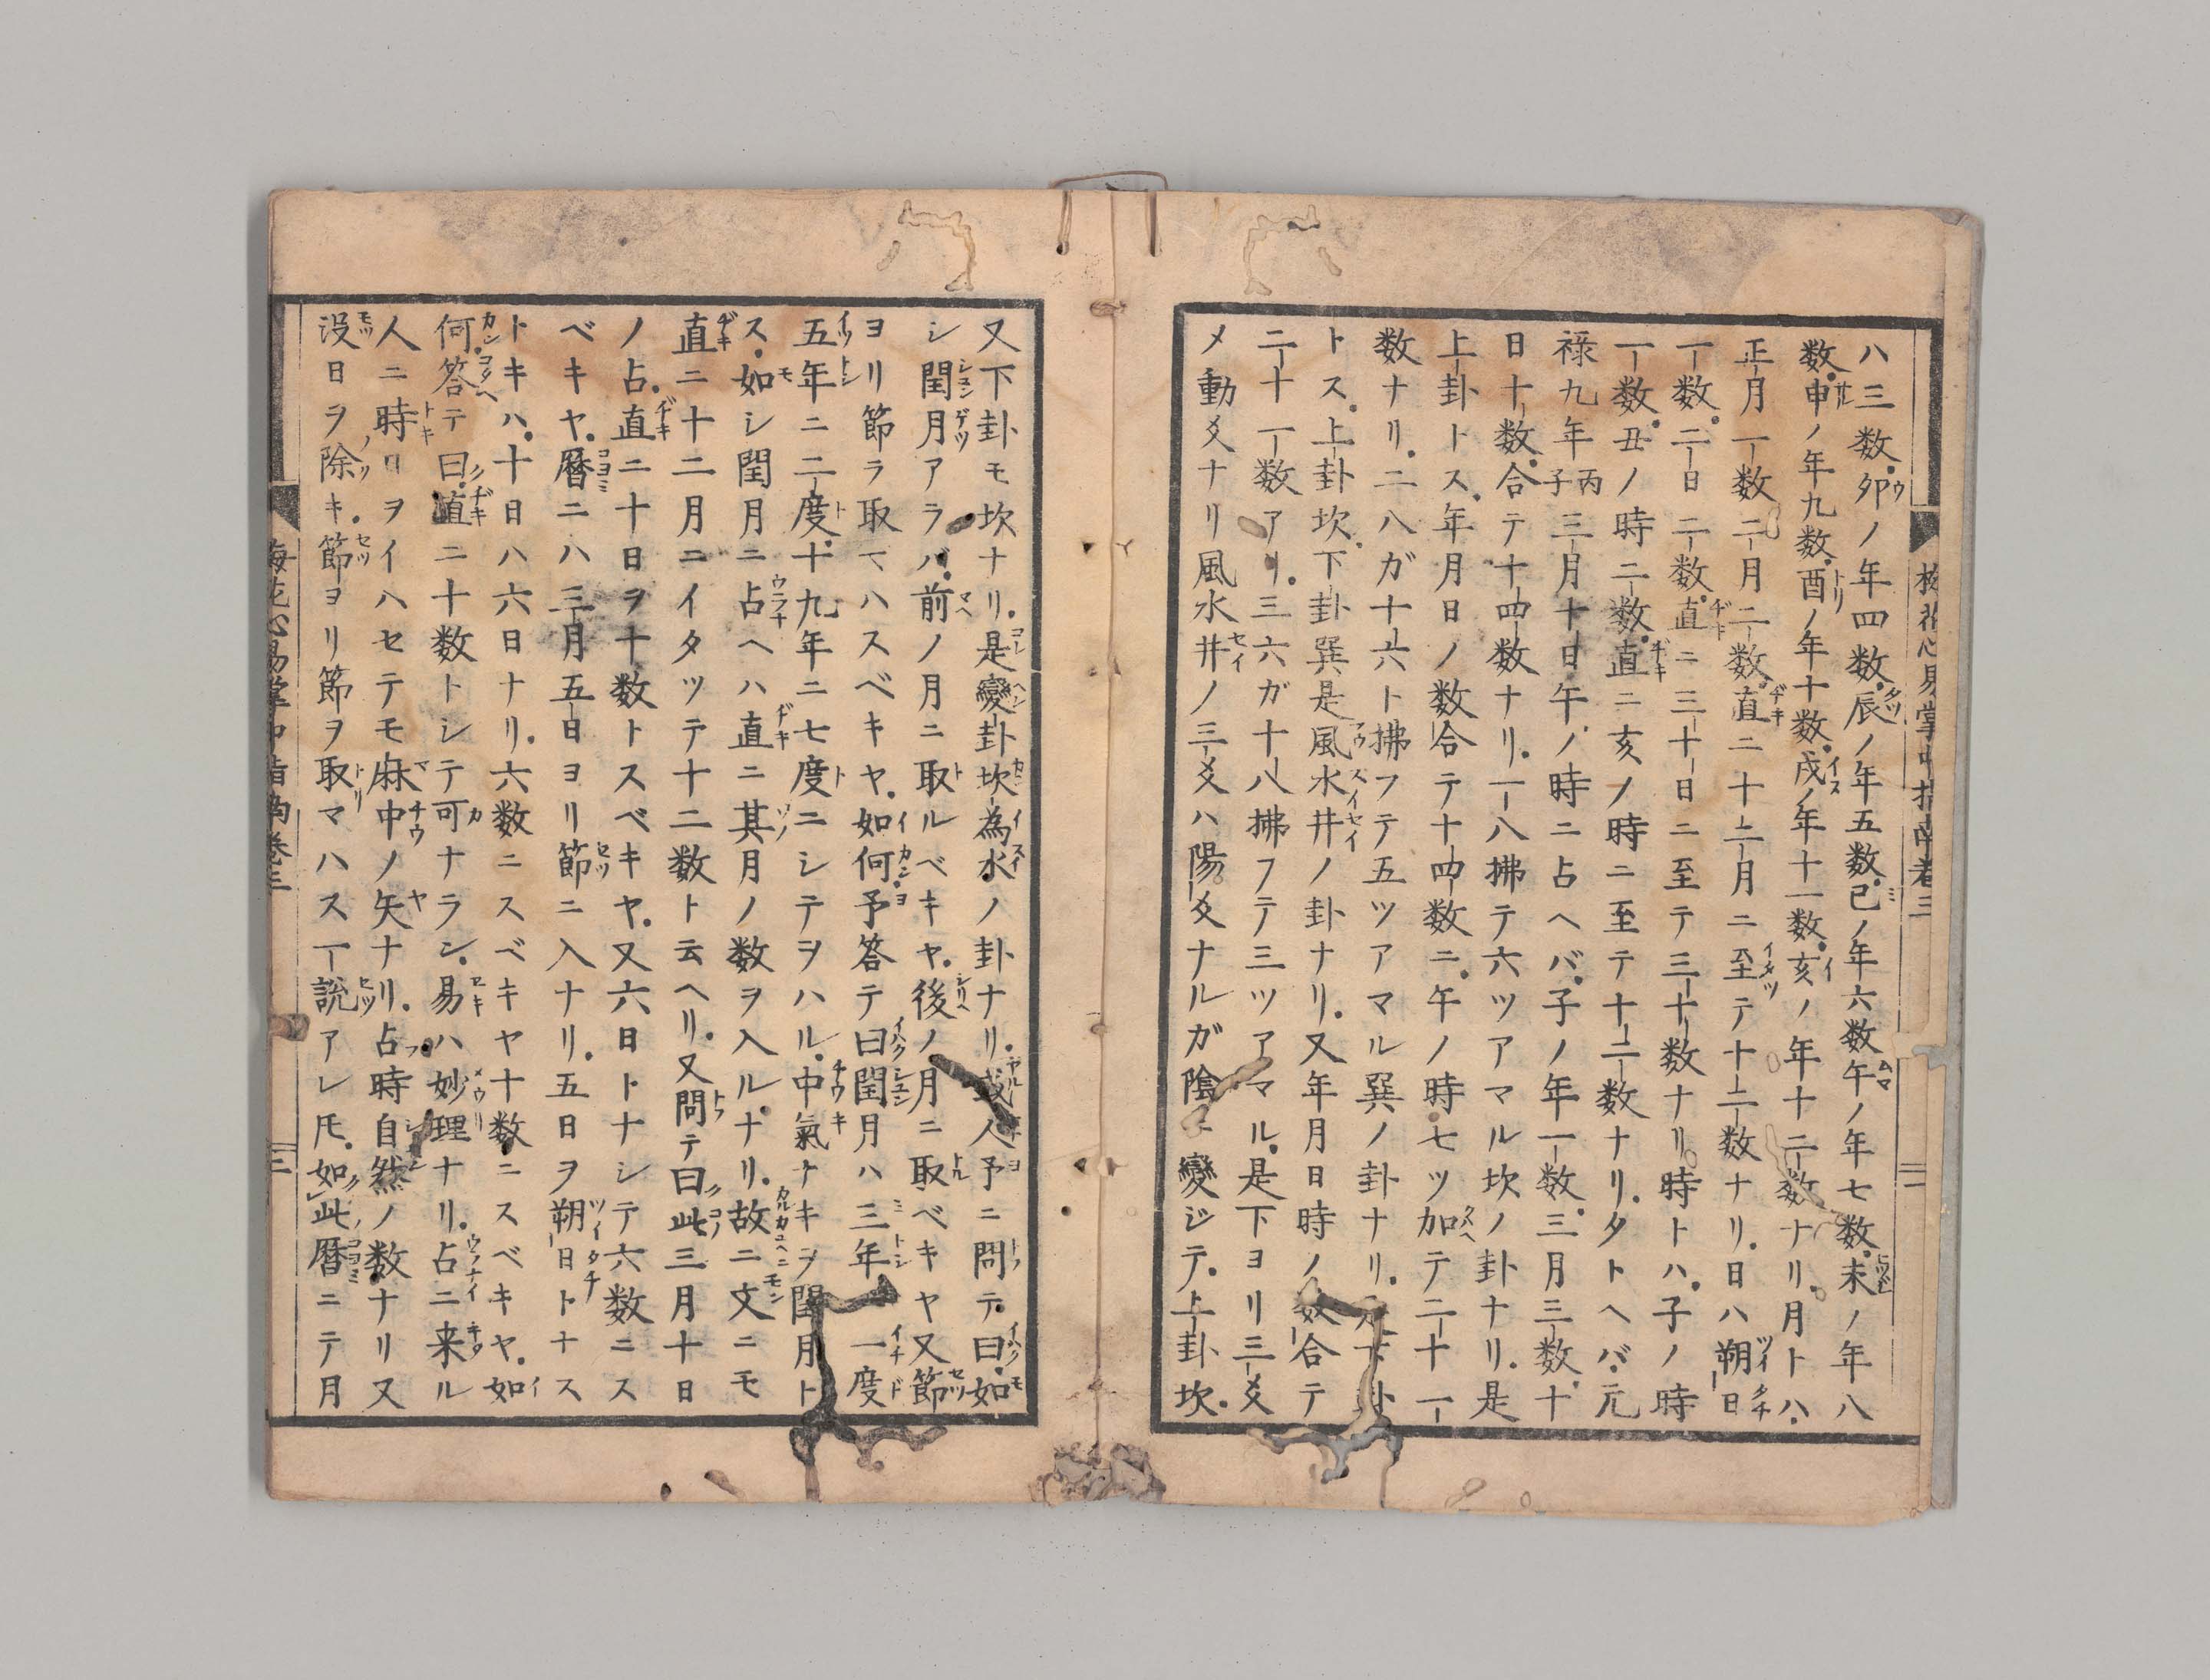 梅花心易掌中指南卷三
二
八三数。卯ノ年四数。辰ノ年五数。巳ノ年六数午ノ年七数。未ノ年八
数。申ノ年九数。酉ノ年十数。戌ノ年十一数。亥ノ年十二数ナリ。月トハ。
正月一数二月二数。直ニ十二月ニ至テ十二数ナリ。日ハ朔日
一数。二日二数。直ニ三十日ニ至テ三十数ナリ時トハ。子ノ時
一数。丑ノ時二数。直ニ亥ノ時ニ至テ十二数ナリ。タトヘバ。元
禄九年丙子三月十日午ノ時ニ占ヘバ。子ノ年一数。三月三数。十
日十数。合テ十四数ナリ。一八拂テ六ツアマル坎ノ卦ナリ。是
上卦トス。年月日ノ数合テ十四数ニ。午ノ時。七ツ加テ二十一
数ナリ。二八ガ十六ト拂フテ五ツアマル巽ノ卦ナリ。下卦
トス。上卦坎。下卦巽是風水井ノ卦ナリ。又年月日時ノ数合テ
二十一数アリ。三六ガ十八拂フテ三ツアマル。是下ヨリ三爻
メ動爻ナリ風水井ノ三爻ハ陽爻ナルガ陰ニ變ジテ。上卦坎。
又下卦モ坎ナリ。是變卦坎為水ノ卦ナリ。或人予ニ問テ曰。如
シ閏月アラバ。前ノ月ニ取ルベキヤ。後ノ月ニ取ベキヤ又節
ヨリ節ヲ取マハスベキヤ。如何予答テ曰閏月ハ三年ニ一度
五年ニ二度。十九年ニ七度ニシテヲハル。中氣ナキヲ閏月ト
ス。如シ閏月ニ占ヘハ直ニ其月ノ数ヲ入ル。ナリ。故ニ文ニモ
直ニ十二月ニイタツテ十二数ト云ヘリ。又問テ曰此三月十日
ノ占。直ニ十日ヲ十数トスベキヤ。又六日トナシテ六数ニス
ベキヤ。暦ニハ三月五日ヨリ節ニ入ナリ。五日ヲ朔日トナス
トキハ。十日ハ六日ナリ。六数ニスベキヤ十数ニスベキヤ。如
何。答テ曰。直ニ十数トシテ可ナラン。易ハ妙理ナリ。占ニ来ル
人ニ時リヲイハセテモ麻中ノ矢ナリ。占時自然ノ数ナリ又
没日ヲ除キ。節ヨリ節ヲ取マハス一説アレ𪜈。如此暦ニテ月
梅花心易掌中指南卷三
三